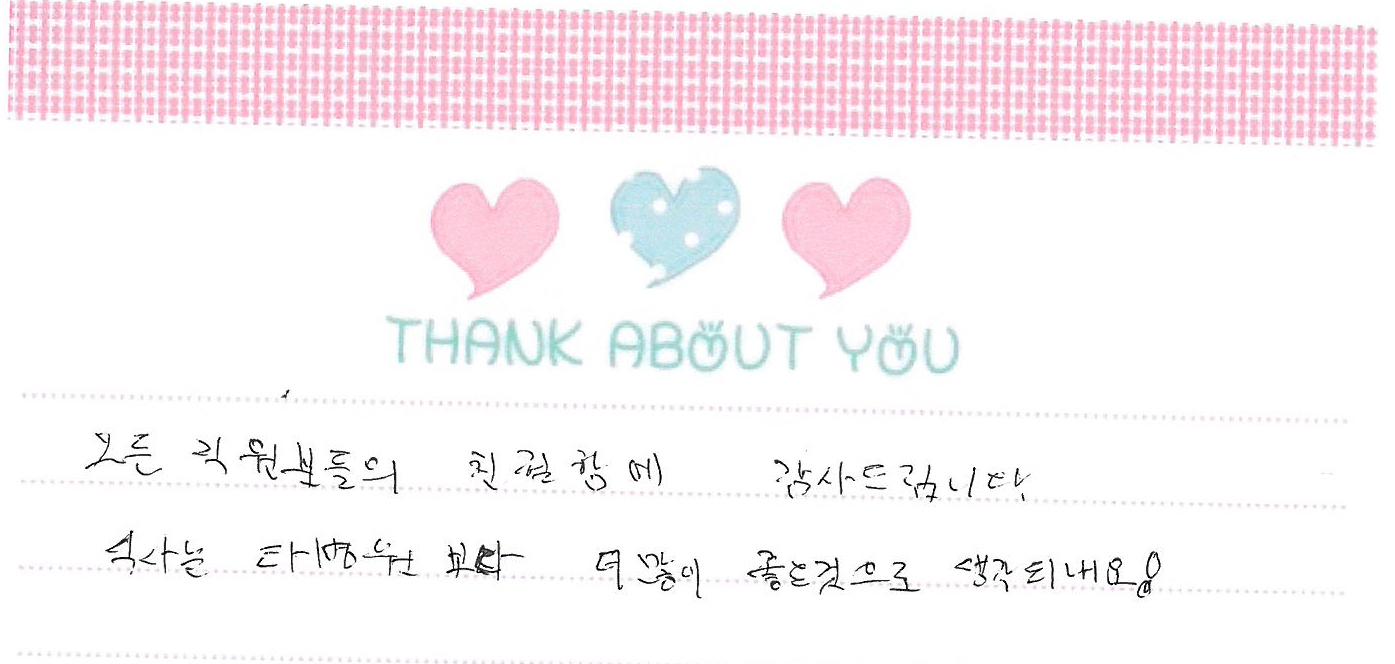 THANK ABOUT YOU
모든 직원분들의 친절함에 감사드립니다
식사는 타병원 보다 더 많이 좋은것으로 생각되내요!